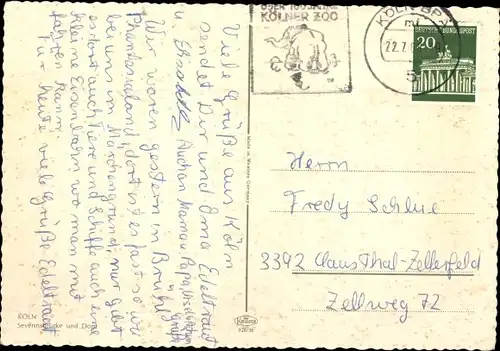 ÜBER 100 JAHRE
KÖLNER ZOO
KÖLN
22.7.
5
DEUTSCHE BUNDESPOST
20
Viele Grüße aus Köln
sendet Dir und Oma Edeltraut
u. Elisabeth Auch an Mama u. Papa
Grüße
Wir waren gestern in Brühl
Phantasialand, dort ist es fast so wie
bei uns im Märchengrund, nur gibt
es dort auch Tiere und Schiffe auch eine
kleine Eisenbahn wo man mit
fahren kann.
Für heute viele Grüße Edeltraut
Herrn
Fredy Schlue
3392 Clausthal-Zellerfeld
Zellweg 72
Made in Western Germany
KÖLN
Severinsbrücke und Dom
Krüger